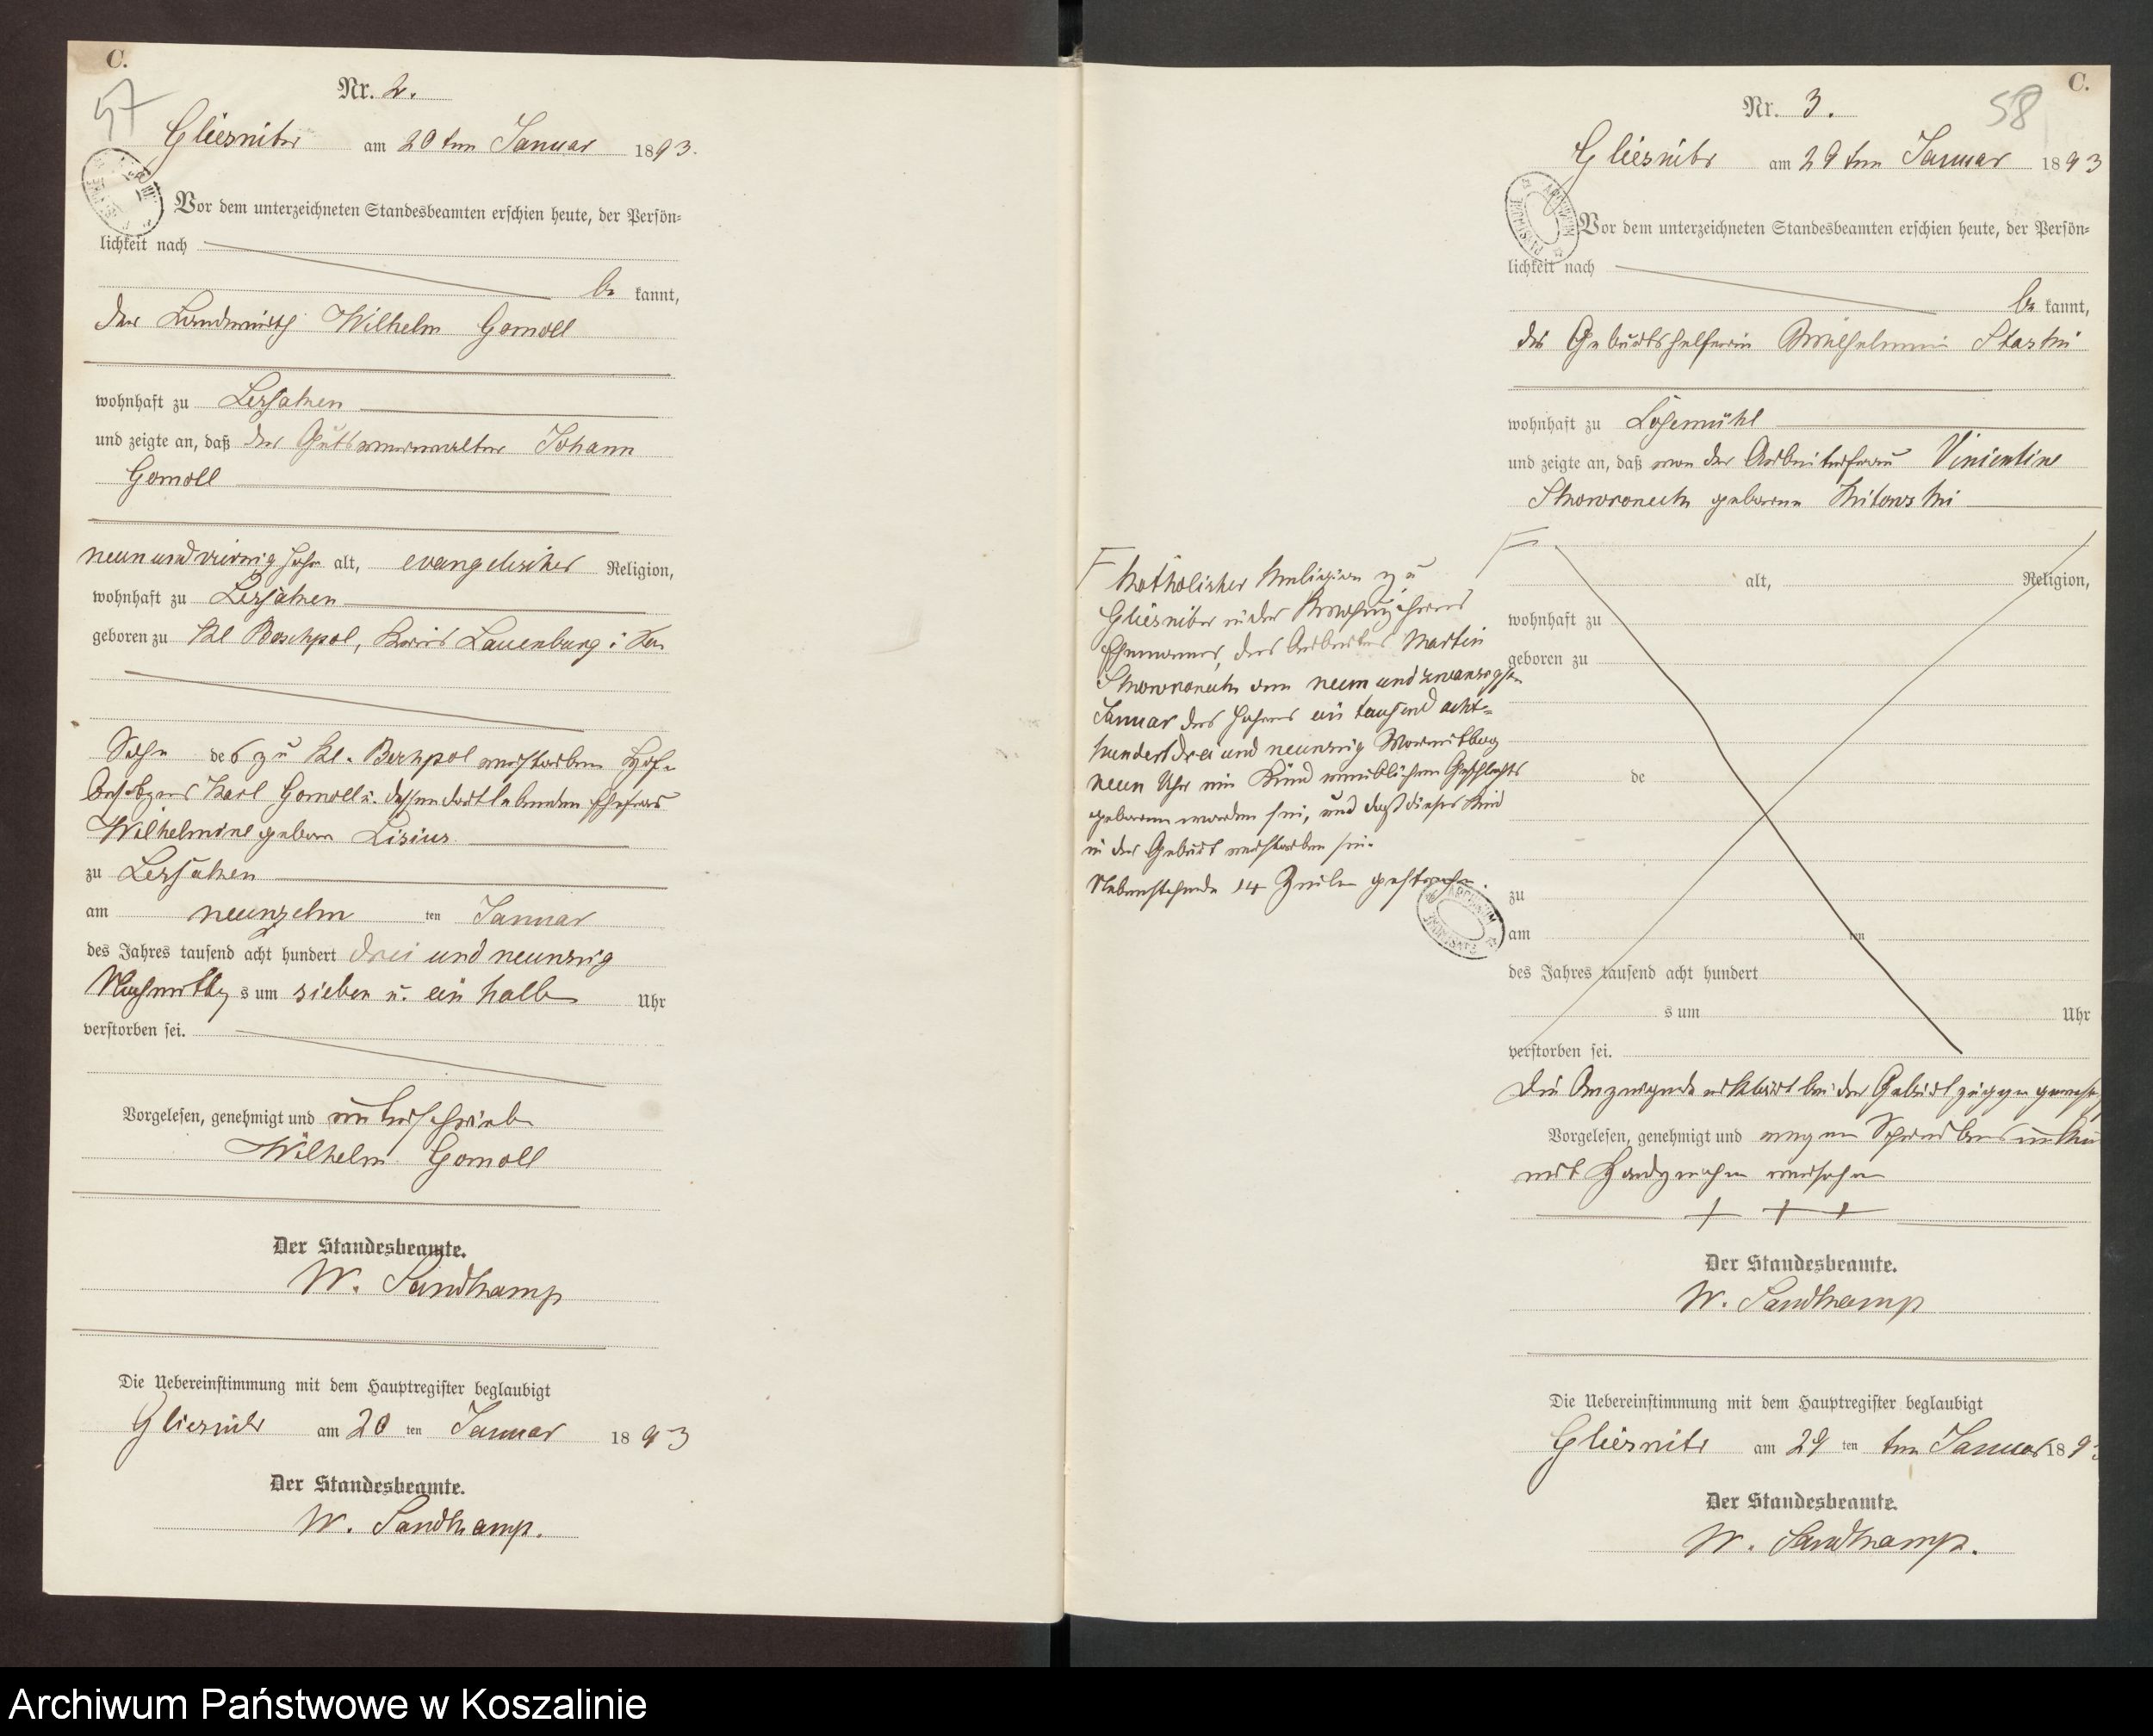 C.
57
Nr. 2.
Gliesnitz am 20ten Januar 1893.
Vor dem unterzeichneten Standesbeamten erschien heute, der Persön=
lichkeit nach
be kannt,
der Landwirth Wilhelm Gomoll
wohnhaft zu Lessaken
und zeigte an, daß der Gutsverwalter Johann
Gomoll
neunundvierzig Jahre alt, evangelischer Religion,
wohnhaft zu Lessaken
geboren zu Kl Boschpol, Kreis Lauenburg i
Sohn des zu Kl. Boschpol verstorbenen Hof
besitzers Karl Gomoll u. dessen Ehefrau
Wilhelmine geborne Lisius
zu Lessaken
am neunzehn ten Januar
des Jahres tausend acht hundert drei und neunzig
Nachmittags um sieben u. ein halb Uhr
verstorben sei.
Vorgelesen, genehmigt und unterschrieben
Wilhelm Gomoll
Der Standesbeamte.
W. Sandkamp
Die Uebereinstimmung mit dem Hauptregister beglaubigt
Gliesnitz am 20 ten Januar 1893
Der Standesbeamte.
W. Sandkamp.
C.
58
Nr. 3.
Gliesnitz am 29ten Januar 1893
ARCHIWUM
Vor dem unterzeichneten Standesbeamten erschien heute, der Persön=
lichkeit nach
be kannt,
die Geburtshelferin Wilhelmine
wohnhaft zu Lojemühl
und zeigte an, daß von der Arbeiterfrau
Skowroneck geborene Kitowski
alt, Religion,
wohnhaft zu
geboren zu
de
zu
am ten
des Jahres tausend acht hundert
s um Uhr
verstorben sei.
katholischer Religion zu
Gliesnitz in der Wohnung ihres
Ehemannes, des Arbeiters Martin
Skowroneck am neun und zwanzigsten
Januar des Jahres ein tausend acht=
hundert drei und neunzig Vormittag
neun Uhr ein Kind männlichen Geschlechts
geboren worden sei, und daß dieses Kind
in der Geburt verstorben sei.
Nebenstehende 14 Zeilen gestrichen.
ARCHIWUM
Die Anzeigende erklärt bei der Geburt zugegen gewesen
Vorgelesen, genehmigt und wegen Schreibens
mit Handzeichen versehen
+ + +
Der Standesbeamte.
W. Sandkamp
Die Uebereinstimmung mit dem Hauptregister beglaubigt
Gliesnitz am 29 ten ten Januar 189
Der Standesbeamte.
W. Sandkamp.
Archiwum Państwowe w Koszalinie